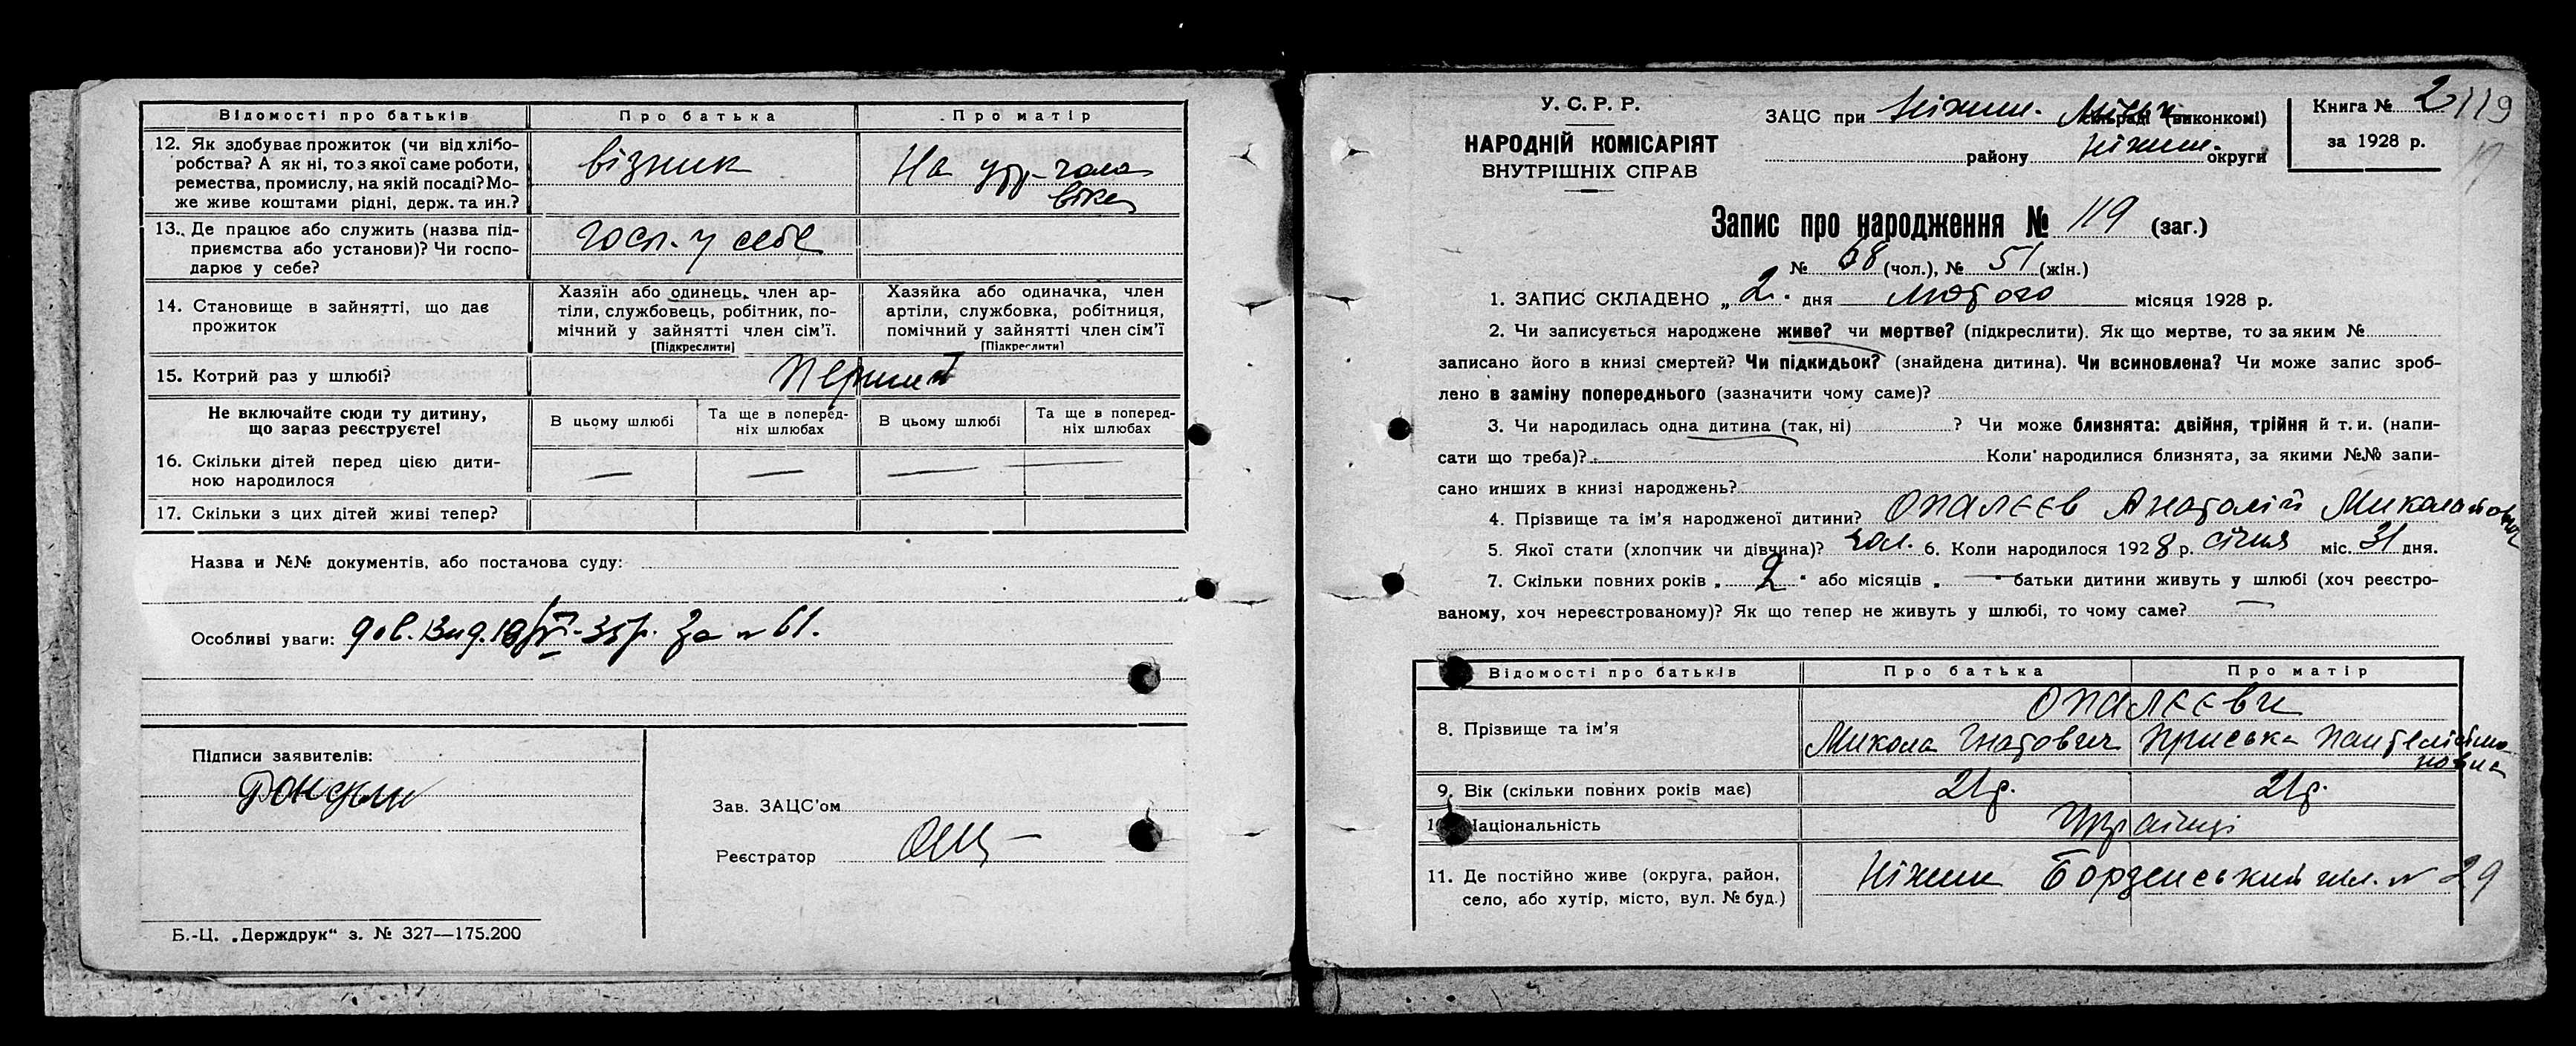 Відомості про батьків
Про батька
Про матір
12. Як здобуває прожиток (чи від хлібо-
робства? А як ні, то з якої саме роботи,
ремества, промислу, на якій посаді? Мо-
же живе коштами рідні, держ. та ин.?
візник
На утр. чола
віка
13. Де працює або служить (назва під-
приємства або установи)? Чи госпо-
дарює у себе?
госп. у себе
14. Становище в зайнятті, що дає
прожиток
Хазяїн або одинець, член ар-
тіли, службовець, робітник, по-
мічний у зайнятті член сім'ї.
[Підкреслити]
Хазяйка або одиначка, член
артіли, службовка, робітниця,
помічний у зайнятті член сім'ї
[Підкреслити]
15. Котрий раз у шлюбі?
Перший
Не включайте сюди ту дитину,
що загаз реєструєте!
В цьому шлюбі
Та ще в поперед-
ніх шлюбах
В цьому шлюбі
Та ще в поперед-
ніх шлюбах
16. Скільки дітей перед цією дити-
ною народилося
— — — —
17. Скільки з цих дітей живі тепер?
Назва и №№ документів, або постанова суду:
Особливі уваги: дов. вид. 35 р. За № 61.
Підписи заявителів:
Зав. ЗАЦС'ом
Реєстратор
Б.-Ц. „Держдрук“ з. № 327—175.200
У. С. Р. Р.
НАРОДНІЙ КОМІСАРІЯТ
ВНУТРІШНІХ СПРАВ
ЗАЦС при Ніжин. Міськ (виконкомі)
району Ніжин. округи
Книга № 2
за 1928 р.
119
Запис про народження № 119 (заг.)
№ 68 (чол.), № 51 (жін.)
1. ЗАПИС СКЛАДЕНО „2“ дня лютого місяця 1928 р.
2. Чи записується народжене живе? чи мертве? (підкреслити). Як що мертве, то за яким №
записано його в книзі смертей? Чи підкидьок? (знайдена дитина). Чи всиновлена? Чи може запис зроб-
лено в заміну попереднього (зазначити чому саме)?
3. Чи народилась одна дитина (так, ні) ? Чи може близнята: двійня, трійня й т. и. (напи-
сати що треба)? Коли народилися близнята, за якими №№ запи-
сано инших в книзі народжень?
4. Прізвище та ім'я народженої дитини? Опалєєв Анатолій Миколайович
5. Якої стати (хлопчик чи дівчина)? чол. 6. Коли народилося 1928 р. січня міс. 31 дня.
7. Скільки повних років „2“ або місяців „—“ батьки дитини живуть у шлюбі (хоч реєстро-
ваному, хоч нереєстрованому)? Як що тепер не живуть у шлюбі, то чому саме? —
Відомості про батьків
Про батька
Про матір
8. Прізвище та ім'я
Опалєєви
Микола Гнатович
Приська Пантелеймо
новна
9. Вік (скільки повних років має)
21 р.
21 р.
Національність
Українці
11. Де постійно живе (округа, район,
село, або хутір, місто, вул. № буд.)
Ніжин Борзенський шл. № 29